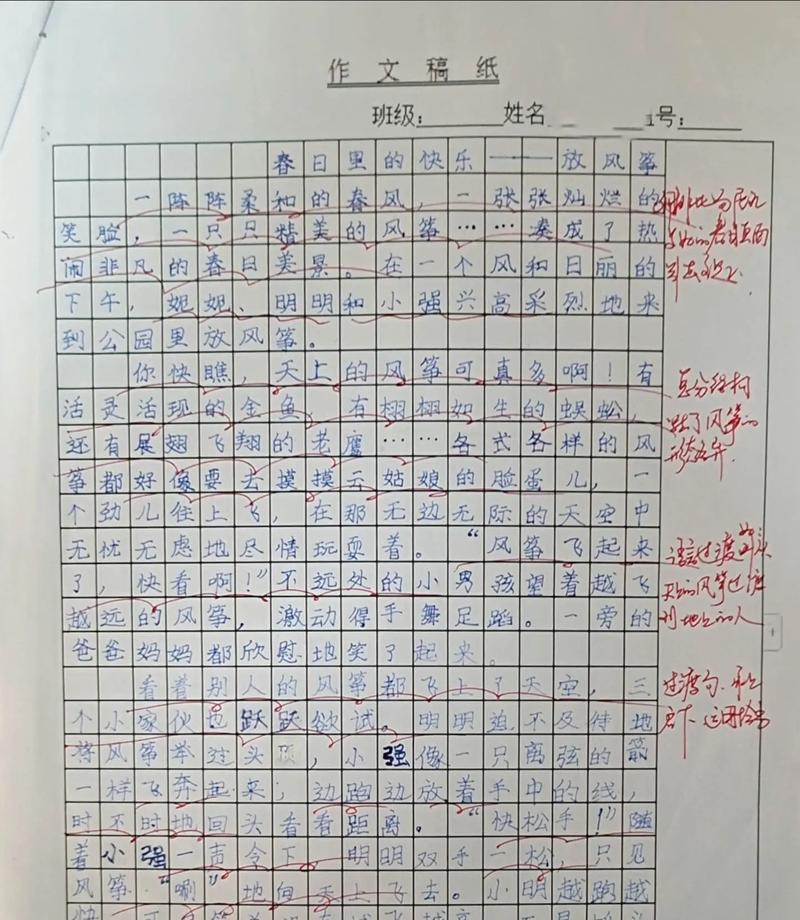 作文稿纸
班级： 姓名 号：
春日里的快乐——放风筝
一阵阵柔和的春风，一张张灿烂的
笑脸，一只只精美的风筝……凑成了热
闹非凡的春日美景。在一个风和日丽的
下午，妮妮、明明和小强兴高采烈地来
到公园里放风筝。
你快瞧，天上的风筝可真多啊！有
活灵活现的金鱼，有栩栩如生的蜈蚣，
还有展翅飞翔的老鹰……各式各样的风
筝都好像要去摸摸云姑娘的脸蛋儿，一
个劲儿往上飞，在那无边无际的天空中
无忧无虑地尽情玩耍着。“风筝飞起来
了，快看啊！”不远处的小男孩望着越飞
越远的风筝，激动得手舞足蹈。一旁的
爸爸妈妈都欣慰地笑了起来。
看着别人的风筝都飞上了天空，三
个小家伙也跃跃欲试。明明迫不及待地
将风筝举过头顶，小强像一只离弦的箭
一样飞奔起来，边跑边放着手中的线，
时不时地回头看看距离。“快松手！”随
着小强一声令下，明明双手一松，只见
风筝“唰”地向天上飞去。小明越跑越
总分结构
风筝的
形态各异
过渡
的风筝过渡
到地上的人
过渡句